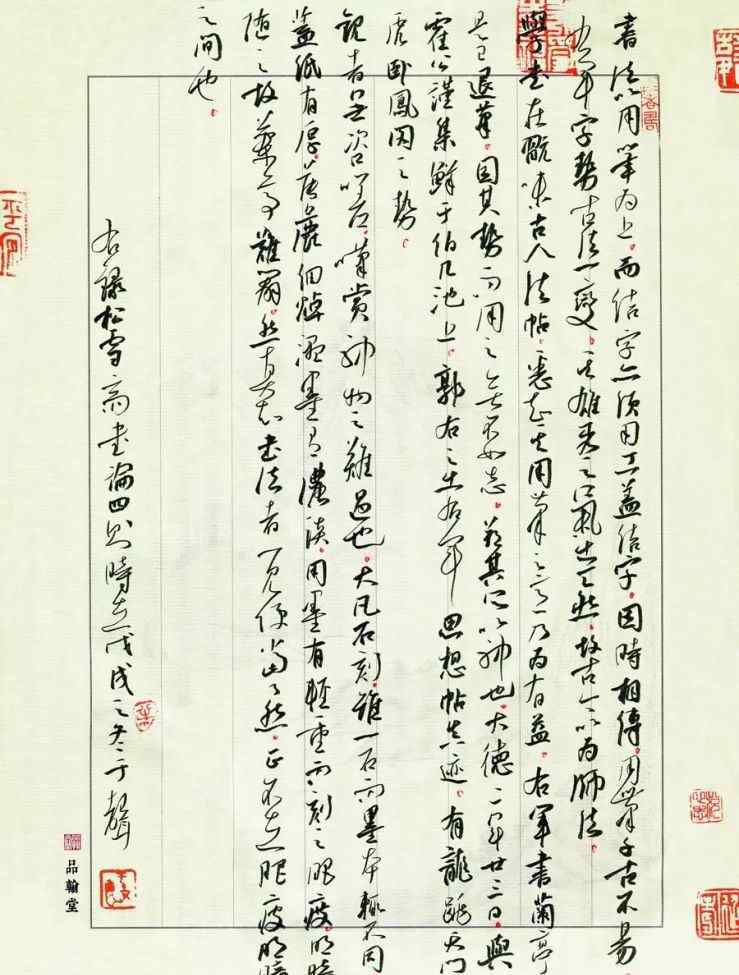 書法以用筆為上。而結字亦須用工蓋結字。因時相傳。用筆千古不易
右軍字勢古法一變。其雄秀之氣出天然。故古今以為師法。
學書在玩味古人法帖。悉知其用筆之意乃為有益。右軍書蘭亭
是已退筆。因其勢而用之無不如志。茲其所以神也。大德二年廿三日。與
霍公謹集鮮于伯几池上。郭右之出右軍思想帖真迹。有龍跳天門
虎臥鳳閣之勢。
觀者無咨嗟。嘆賞神物之難遇也。大凡石刻。雖一石而墨本輒不同
蓋紙有厚。薄麤細燥濕墨有濃淡。用墨有輕重而刻之肥瘦。明暗
隨之故蘭亭難辨。然真知書法者一見便當了然。正不在肥瘦明暗
之間也。
右錄松雪齋書論四則時在戊戌之冬于聲
品翰堂